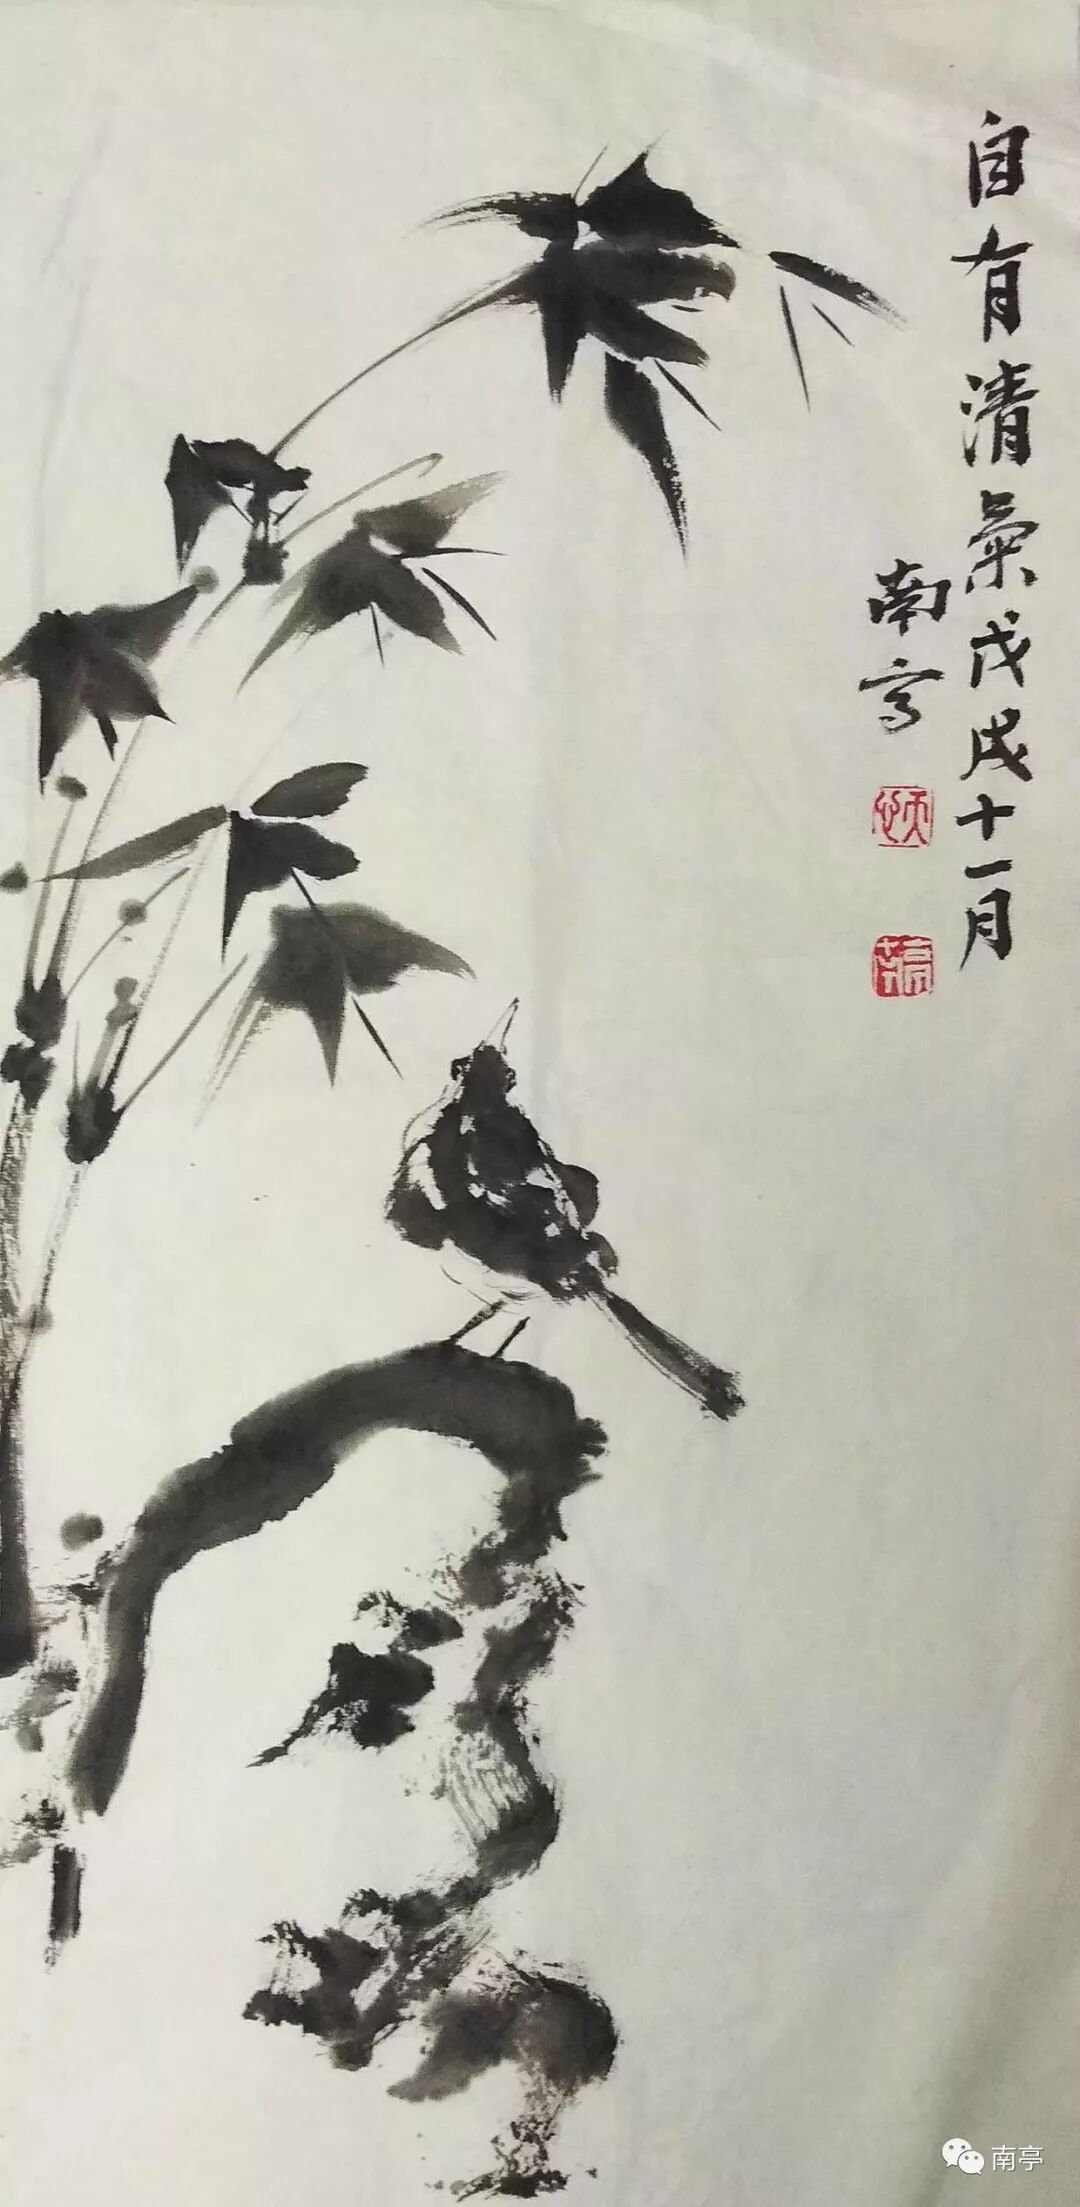 自有清氣戊戌十一月
南亭
南亭